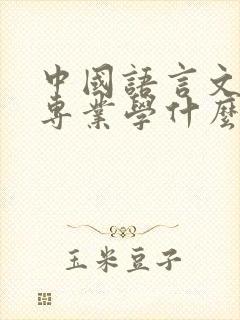 中國語言文
專業學什麼
玉米豆子